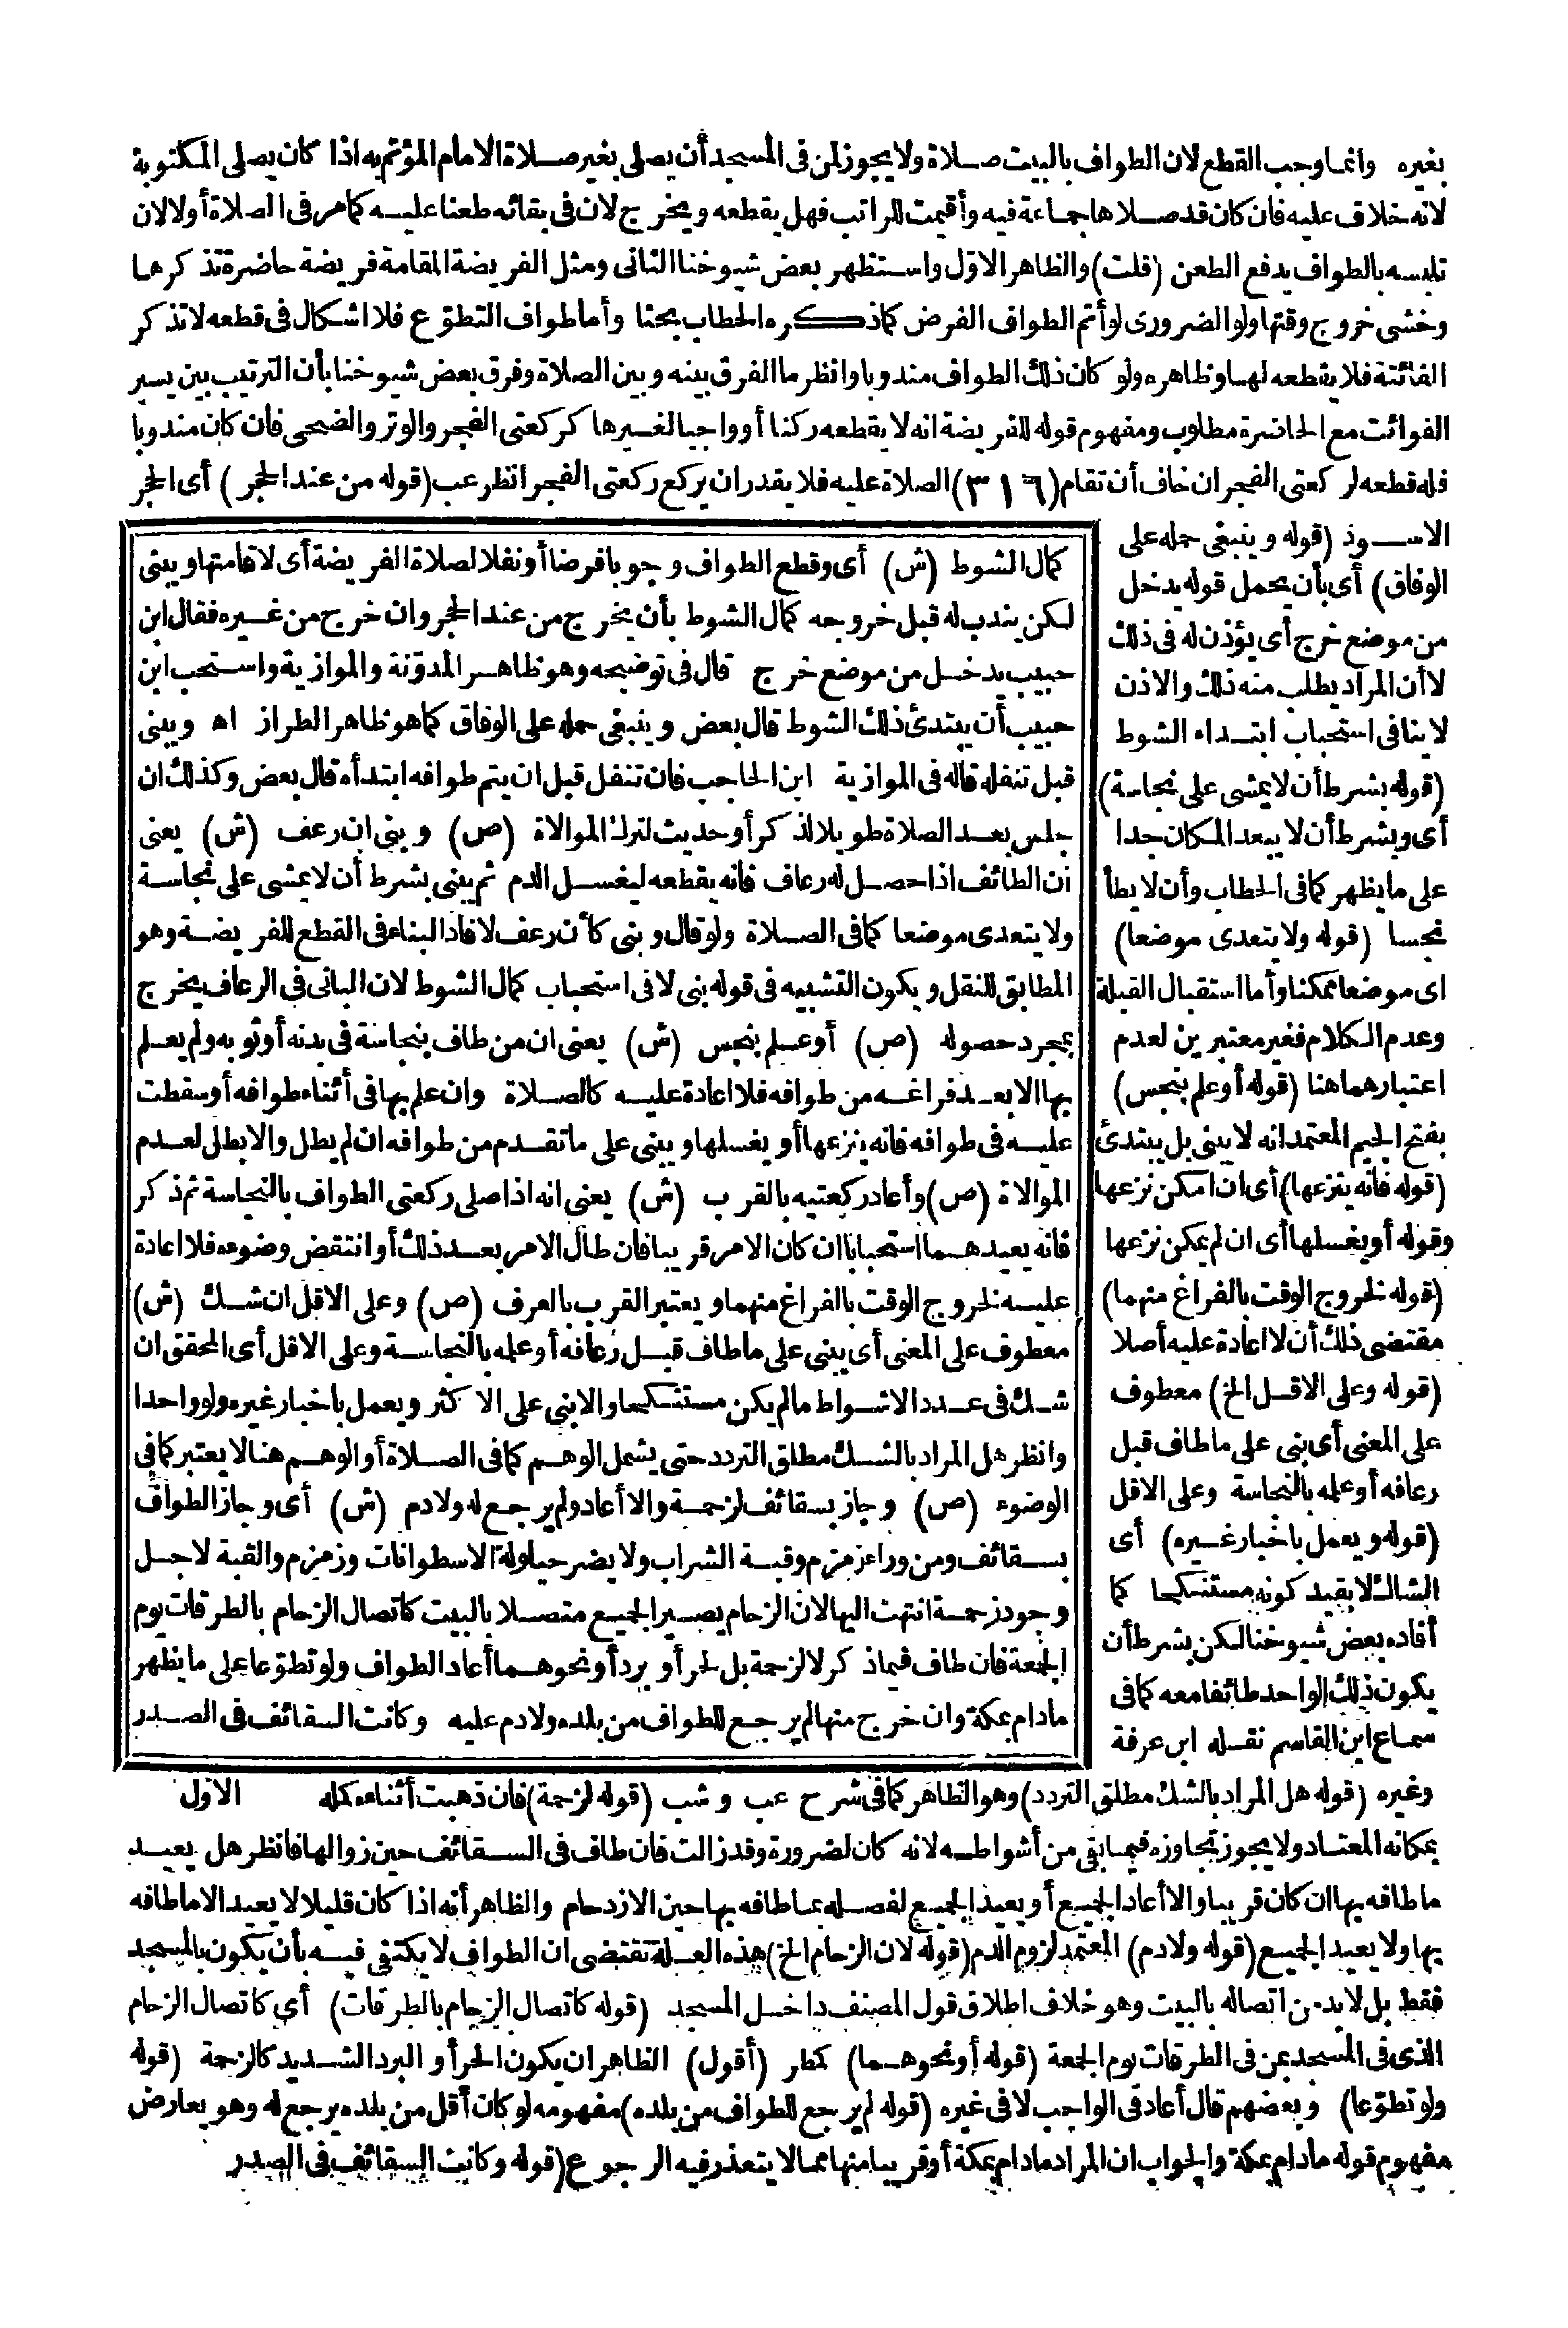 بغيره وانما وجب القطع لان الطواف بالبيت صلاة ولا يجوز لمن فى المسجد أن يصلى بغير صلاة الامام المؤتم به اذا كان يصلى المكتوبة
لانه خلاف عليه فان كان قد صلاها جماعة فيه وأقيمت للراتب فهل يقطعه ويخرج لان فى بقائه طعنا عليه كما مر فى الصلاة أولا لان
تلبسه بالطواف يدفع الطعن (قلت) والظاهر الاوّل واستظهر بعض شيوخنا الثانى ومثل الفريضة المقامة فريضة حاضرة تذكرها
وخشى خروج وقتها ولو الضرورى لو أتم الطواف الفرض كما ذكره الحطاب بحثا وأما طواف التطوّع فلا اشكال فى قطعه لا تذكر
الفائتة فلا يقطعه لها وظاهره ولو كان ذلك الطواف مندوبا وانظر ما الفرق بينه وبين الصلاة وفرق بعض شيوخنا بأن الترتيب بين يسير
الفوائت مع الحاضرة مطلوب ومفهوم قوله للفريضة انه لا يقطعه ركنا أو واجبا لغيرها كركعتى الفجر والوتر والضحى فان كان مندوبا
فله قطعه لركعتى الفجر ان خاف أن تقام (٣١٦) الصلاة عليه فلا يقدر ان يركع ركعتى الفجر انظر عب (قوله من عند الحجر) أى الحجر
الاسود (قوله وينبغى حمله على
الوفاق) أى بأن يحمل قوله يدخل
من موضع خرج أى يؤذن له فى ذلك
لا أن المراد يطلب منه ذلك والاذن
لا ينافى استحباب ابتداء الشوط
(قوله بشرط أن لا يمشى على نجاسة)
أى وبشرط أن لا يبعد المكان جدا
على ما يظهر كما فى الحطاب وأن لا يطأ
نجسا (قوله ولا يتعدى موضعا)
اى موضعا ممكنا وأما استقبال القبلة
وعدم الكلام فغير معتبرين لعدم
اعتبارهما هنا (قوله أو علم بنجس)
بفتح الجيم المعتمد انه لا يبنى بل يبتدئ
(قوله فانه ينزعها) أى ان امكن نزعها
وقوله أو يغسلها أى ان لم يمكن نزعها
(قوله لخروج الوقت بالفراغ منهما)
مقتضى ذلك أن لا اعادة عليه أصلا
(قوله وعلى الاقل الخ) معطوف
على المعنى أى بنى على ما طاف قبل
رعافه أو علمه بالنجاسة وعلى الاقل
(قوله ويعمل باخبار غيره) أى
الشاك لا بقيد كونه مستنكحا كما
أفاده بعض شيوخنا لكن بشرط أن
يكون ذلك الواحد طائفا معه كما فى
سماع ابن القاسم نقله ابن عرفة
كمال الشوط (ش) أى وقطع الطواف وجوبا فرضا أو نفلا لصلاة الفريضة أى لاقامتها ويبنى
لكن يندب له قبل خروجه كمال الشوط بأن يخرج من عند الحجر وان خرج من غيره فقال ابن
حبيب يدخل من موضع خرج قال فى توضيحه وهو ظاهر المدوّنة والموازية واستحب ابن
حبيب أن يبتدئ ذلك الشوط قال بعض وينبغى حمله على الوفاق كما هو ظاهر الطراز اه ويبنى
قبل تنفله قاله فى الموازية ابن الحاجب فان تنفل قبل ان يتم طوافه ابتدأه قال بعض وكذلك ان
جلس بعد الصلاة طويلا لذكر أو حديث لترك الموالاة (ص) وبنى ان رعف (ش) يعنى
أن الطائف اذا حصل له رعاف فانه يقطعه ليغسل الدم ثم يبنى بشرط أن لا يمشى على نجاسة
ولا يتعدى موضعا كما فى الصلاة ولو قال وبنى كأن رعف لافاد البناء فى القطع للفريضة وهو
المطابق للنقل ويكون التشبيه فى قوله بنى لا فى استحباب كمال الشوط لان البانى فى الرعاف يخرج
بمجرد حصوله (ص) أو علم بنجس (ش) يعنى ان من طاف بنجاسة فى بدنه أو ثوبه ولم يعلم
بها الا بعد فراغه من طوافه فلا اعادة عليه كالصلاة وان علم بها فى أثناء طوافه أو سقطت
عليه فى طوافه فانه ينزعها أو يغسلها ويبنى على ما تقدم من طوافه ان لم يطل والا بطل لعدم
الموالاة (ص) وأعاد ركعتيه بالقرب (ش) يعنى انه اذا صلى ركعتى الطواف بالنجاسة ثم ذكر
فانه يعيدهما استحبابا ان كان الامر قريبا فان طال الامر بعد ذلك أو انتقض وضوءه فلا اعادة
عليه لخروج الوقت بالفراغ منهما ويعتبر القرب بالعرف (ص) وعلى الاقل ان شك (ش)
معطوف على المعنى أى يبنى على ما طاف قبل رعافه أو علمه بالنجاسة وعلى الاقل أى المحقق ان
شك فى عدد الاشواط ما لم يكن مستنكحا والا بنى على الاكثر ويعمل باخبار غيره ولو واحدا
وانظر هل المراد بالشك مطلق التردد حتى يشمل الوهم كما فى الصلاة أو الوهم هنا لا يعتبر كما فى
الوضوء (ص) وجاز بسقائف لزحمة والا أعاد ولم يرجع له ولا دم (ش) أى وجاز الطواف
بسقائف ومن وراء زمزم وقبة الشراب ولا يضر حيلولة الاسطوانات وزمزم والقبة لاجل
وجود زحمة انتهت اليها لان الزحام يصير الجميع متصلا بالبيت كاتصال الزحام بالطرقات يوم
الجمعة فان طاف فيما ذكر لا لزحمة بل لحر أو برد أو نحوهما أعاد الطواف ولو تطوّعا على ما يظهر
ما دام بمكة وان خرج منها لم يرجع للطواف من بلده ولا دم عليه وكانت السقائف فى الصدر
وغيره (قوله هل المراد بالشك مطلق التردد) وهو الظاهر كما فى شرح عب وشب (قوله لزحمة) فان ذهبت أثناءه كمله الاول
بمكانه المعتاد ولا يجوز تجاوزه فيما بقى من أشواطه لانه كان لضرورة وقد زالت فان طاف فى السقائف حين زوالها فانظر هل يعيد
ما طافه بها ان كان قريبا والا أعاد الجميع أو يعيد الجميع لفصله بما طافه بها حين الازدحام والظاهر أنه اذا كان قليلا لا يعيد الا ما طافه
بها ولا يعيد الجميع (قوله ولا دم) المعتمد لزوم الدم (قوله لان الزحام الخ) هذه العلة تقتضى ان الطواف لا يكتفى فيه بأن يكون بالمسجد
فقط بل لا بد من اتصاله بالبيت وهو خلاف اطلاق قول المصنف داخل المسجد (قوله كاتصال الزحام بالطرقات) أى كاتصال الزحام
الذى فى المسجد بمن فى الطرقات يوم الجمعة (قوله أو نحوهما) كمطر (أقول) الظاهر ان يكون الحر أو البرد الشديد كالزحمة (قوله
ولو تطوّعا) وبعضهم قال أعاد فى الواجب لا فى غيره (قوله لم يرجع للطواف من بلده) مفهومه لو كان أقل من بلده يرجع له وهو يعارض
مفهوم قوله ما دام بمكة والجواب ان المراد ما دام بمكة أو قريبا منها مما لا يتعذر فيه الرجوع (قوله وكانت السقائف فى الصدر